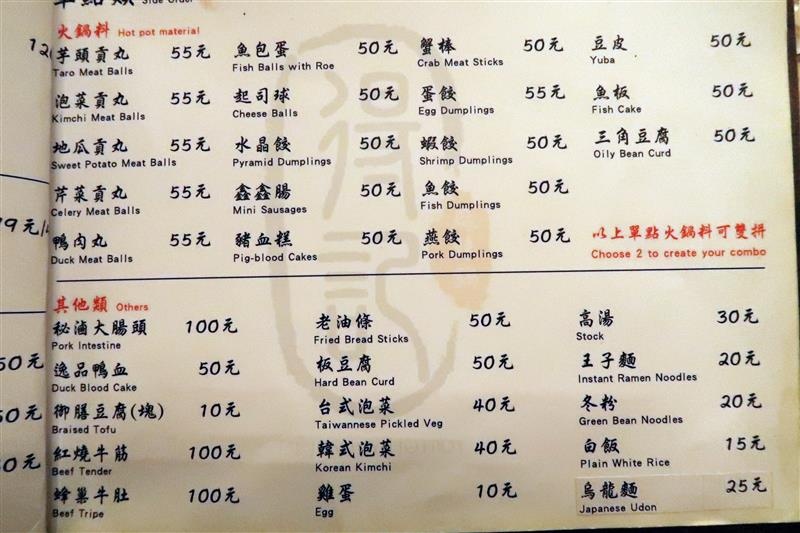 單點類 Side Order
火鍋料 Hot pot material
芋頭貢丸 55元
Taro Meat Balls
泡菜貢丸 55元
Kimchi Meat Balls
地瓜貢丸 55元
Sweet Potato Meat Balls
芹菜貢丸 55元
Celery Meat Balls
鴨肉丸 55元
Duck Meat Balls
魚包蛋 50元
Fish Balls with Roe
起司球 50元
Cheese Balls
水晶餃 50元
Pyramid Dumplings
鑫鑫腸 50元
Mini Sausages
豬血糕 50元
Pig-blood Cakes
蟹棒 50元
Crab Meat Sticks
蛋餃 55元
Egg Dumplings
蝦餃 50元
Shrimp Dumplings
魚餃 50元
Fish Dumplings
燕餃 50元
Pork Dumplings
豆皮 50元
Yuba
魚板 50元
Fish Cake
三角豆腐 50元
Oily Bean Curd
以上單點火鍋料可雙拼
Choose 2 to create your combo
其他類 Others
秘滷大腸頭 100元
Pork Intestine
逸品鴨血 50元
Duck Blood Cake
御膳豆腐(塊) 10元
Braised Tofu
紅燒牛筋 100元
Beef Tender
蜂巢牛肚 100元
Beef Tripe
老油條 50元
Fried Bread Sticks
板豆腐 50元
Hard Bean Curd
台式泡菜 40元
Taiwannese Pickled Veg
韓式泡菜 40元
Korean Kimchi
雞蛋 10元
Egg
高湯 30元
Stock
王子麵 20元
Instant Ramen Noodles
冬粉 20元
Green Bean Noodles
白飯 15元
Plain White Rice
烏龍麵 25元
Japanese Udon
得記